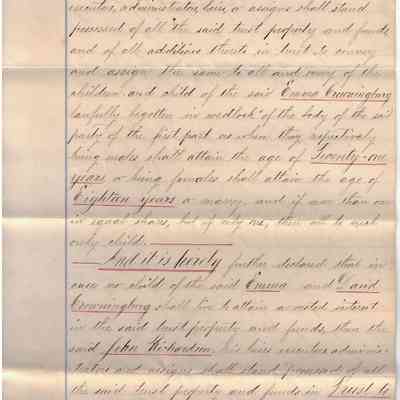 executor, administrator, heirs or assigns shall stand
possessed of all the said trust property and funds
and of all additions thereto in trust to convey
and assign the same to all and every of the
children and child of the said Emma Crowningburg
lawfully begotten in wedlock of the body of the said
party of the first part as when they respectively
being males shall attain the age of Twenty-one
years or being females shall attain the age of
Eighteen years or marry, and if more than one
in equal shares, but if only one, then all to such
only child.
And it is hereby further declared that in
case no child of the said Emma and David
Crowningburg shall live to attain a vested interest
in the said trust property and funds, then the
said John Richardson, his heirs executors adminis-
trators and assigns shall stand possessed of all
the said trust property and funds in Trust to